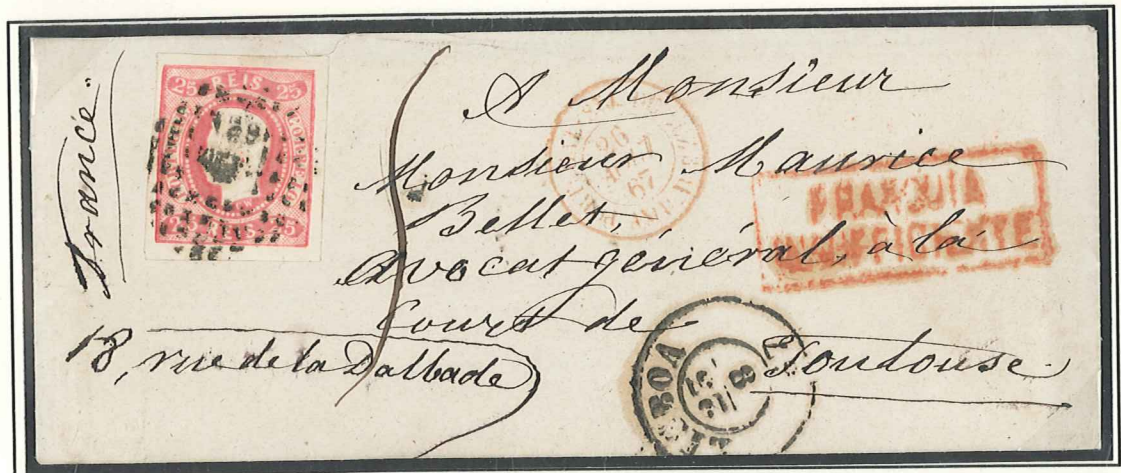 France.
25 REIS 25
25 REIS 25
A Monsieur
Monsieur Maurice
Bellet,
avocat général, à la
Court de
Toulouse.
18, rue de la Dalbade
FRANQUIA
INSUFFICIENTE
26
67
LISBOA